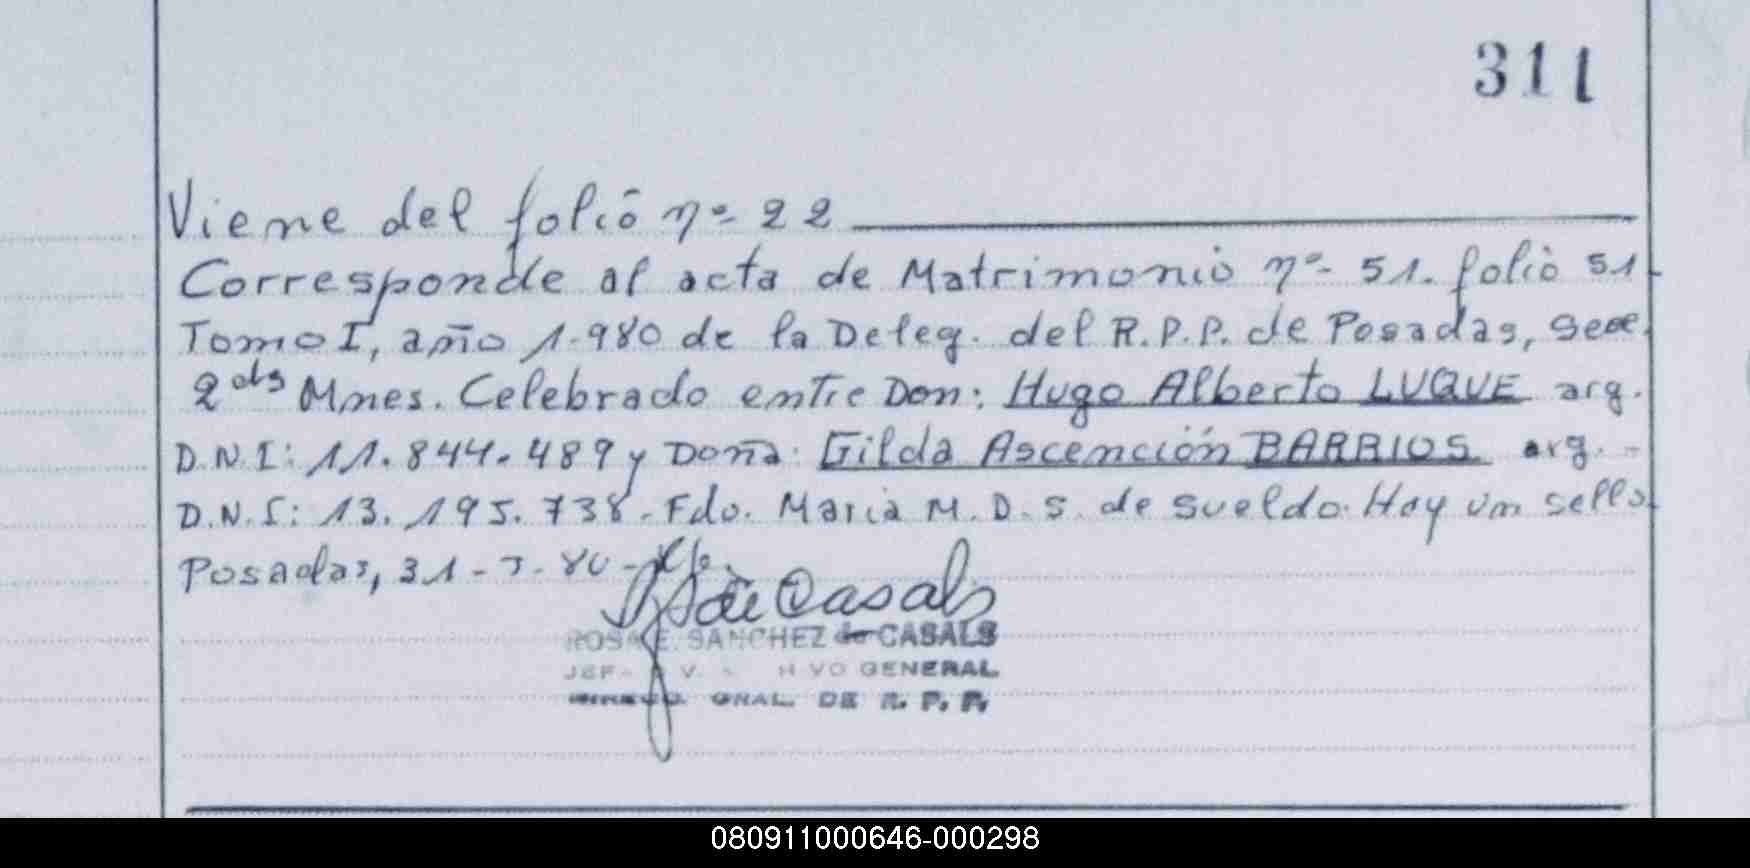 311
Viene del folio nº 22
Corresponde al acta de Matrimonio nº 51. folio 51
Tomo I, año 1.980 de la Deleg. del R.P.P. de Posadas, Secc.
2da Mnes. Celebrado entre Don: Hugo Alberto LUQUE arg.
D.N.I: 11.844.489 y Doña: Gilda Ascención BARRIOS arg. -
D.N.I: 13.195.738. Fdo. Maria M.D.S. de Sueldo. Hay un sello
Posadas, 31-3-80-
de Casals
ROSA E. SANCHEZ de CASALS
GENERAL
GRAL. DE R. P. P.
080911000646-000298